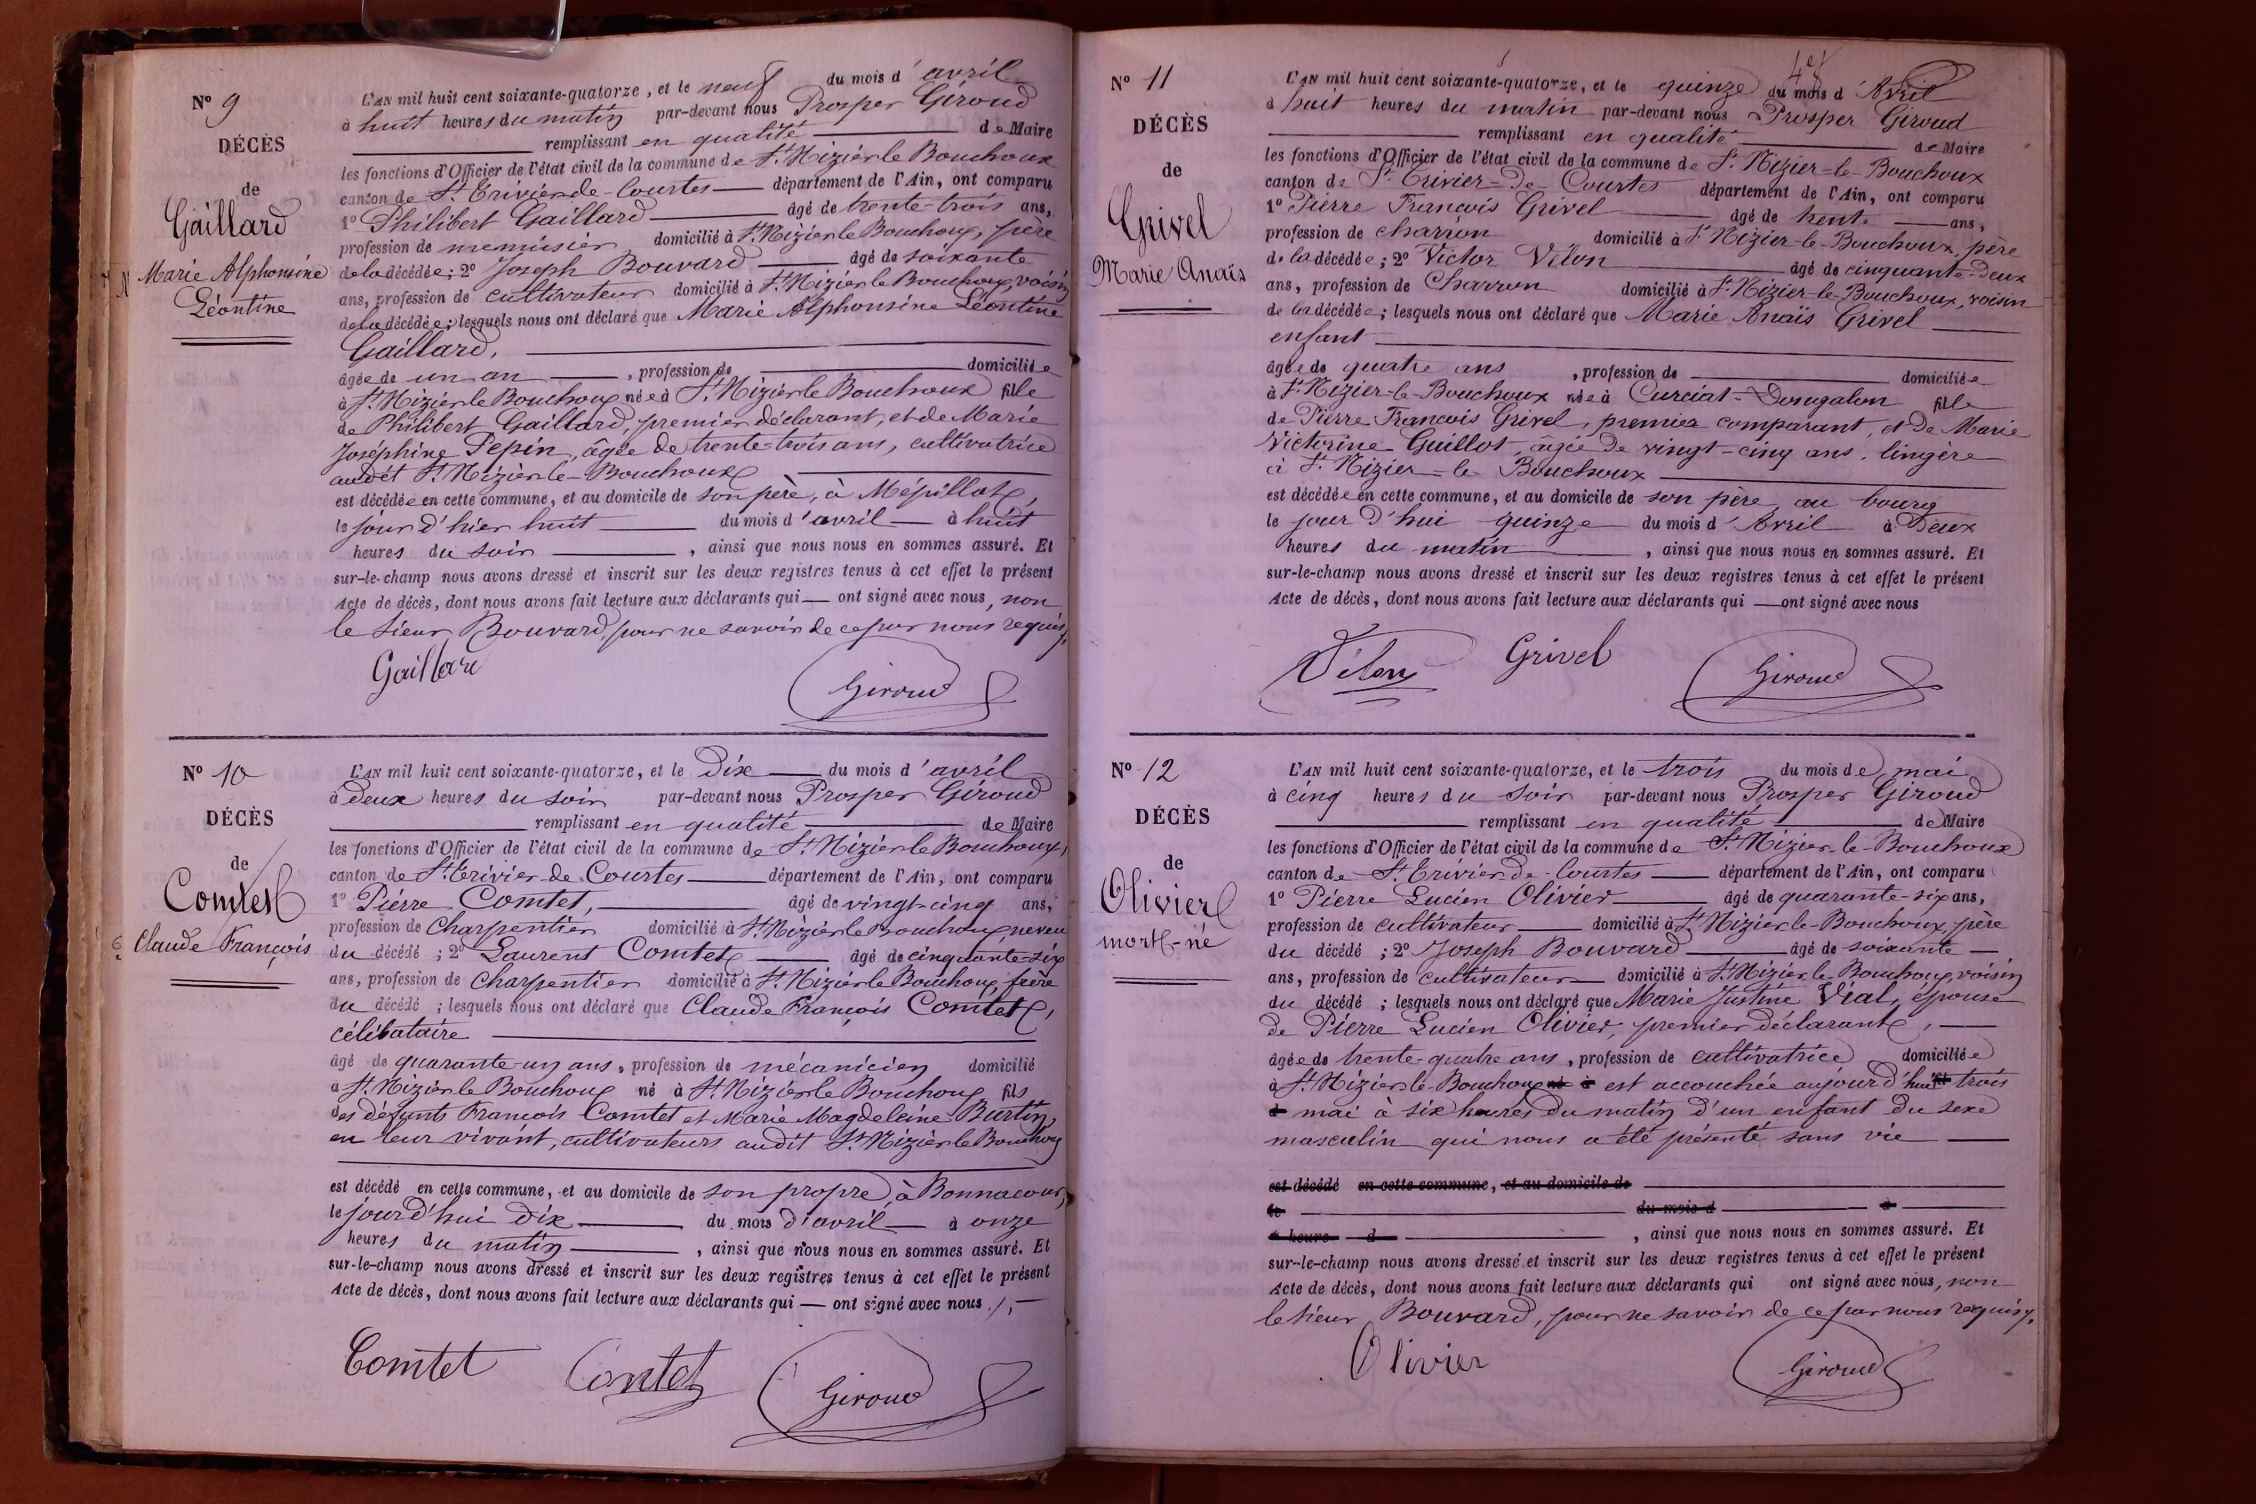 N° 9
DÉCÈS
de
Gaillard
Marie Alphonsine
Léontine
L'AN mil huit cent soixante-quatorze, et le neuf du mois d'avril
à huit heures du matin par-devant nous Prosper Giroud
remplissant en qualité de Maire
les fonctions d'Officier de l'état civil de la commune de St Nizier le Bouchoux
canton de St Trivier-de-Courtes département de l'Ain, ont comparu
1° Philibert Gaillard âgé de trente-trois ans,
profession de menuisier domicilié à St Nizier le Bouchoux, père
de la décédée; 2° Joseph Bouvard âgé de soixante
ans, profession de cultivateur domicilié à St Nizier le Bouchoux, voisin
de la décédée; lesquels nous ont déclaré que Marie Alphonsine Léontine
Gaillard,
âgée de un an, profession de domiciliée
à St Nizier le Bouchoux née à St Nizier le Bouchoux fille
de Philibert Gaillard, premier déclarant, et de Marie
Joséphine Pepin, âgée de trente-trois ans, cultivatrice
audit St Nizier le Bouchoux
est décédée en cette commune, et au domicile de son père, à Mépillat,
le jour d'hier huit du mois d'avril à huit
heures du soir, ainsi que nous nous en sommes assuré. Et
sur-le-champ nous avons dressé et inscrit sur les deux registres tenus à cet effet le présent
Acte de décès, dont nous avons fait lecture aux déclarants qui ont signé avec nous, non
le sieur Bouvard, pour ne savoir de ce par nous requis.
Gaillard
Giroud
N° 10
DÉCÈS
de
Comtet
Claude François
L'AN mil huit cent soixante-quatorze, et le dix du mois d'avril
à deux heures du soir par-devant nous Prosper Giroud
remplissant en qualité de Maire
les fonctions d'Officier de l'état civil de la commune de St Nizier le Bouchoux,
canton de St Trivier-de-Courtes département de l'Ain, ont comparu
1° Pierre Comtet, âgé de vingt-cinq ans,
profession de charpentier domicilié à St Nizier le Bouchoux, neveu
du décédé; 2° Laurent Comtet âgé de cinquante-six
ans, profession de charpentier domicilié à St Nizier le Bouchoux, frère
du décédé; lesquels nous ont déclaré que Claude François Comtet,
célibataire
âgé de quarante-un ans, profession de mécanicien domicilié
à St Nizier le Bouchoux né à St Nizier le Bouchoux fils
des défunts François Comtet et Marie Magdeleine Burtin,
en leur vivant, cultivateurs audit St Nizier le Bouchoux
est décédé en cette commune, et au domicile de son propre, à Bonnacour,
le jourd'hui dix du mois d'avril à onze
heures du matin, ainsi que nous nous en sommes assuré. Et
sur-le-champ nous avons dressé et inscrit sur les deux registres tenus à cet effet le présent
Acte de décès, dont nous avons fait lecture aux déclarants qui ont signé avec nous.
Comtet
Comtet
Giroud
N° 11
DÉCÈS
de
Grivel
Marie Anaïs
L'AN mil huit cent soixante-quatorze, et le quinze du mois d'Avril
à huit heures du matin par-devant nous Prosper Giroud
remplissant en qualité de Maire
les fonctions d'Officier de l'état civil de la commune de St Nizier-le-Bouchoux
canton de St Trivier-De-Courtes département de l'Ain, ont comparu
1° Pierre François Grivel âgé de trente ans,
profession de charron domicilié à St Nizier-le-Bouchoux, père
de la décédée; 2° Victor Vélon âgé de cinquante-deux
ans, profession de Charron domicilié à St Nizier-le-Bouchoux, voisin
de la décédée; lesquels nous ont déclaré que Marie Anaïs Grivel
enfant
âgée de quatre ans, profession de domiciliée
à St Nizier-le-Bouchoux née à Curciat-Dongalon fille
de Pierre François Grivel, premier comparant, et de Marie
Victorine Guillot, âgée de vingt-cinq ans, lingère
à St Nizier-le-Bouchoux
est décédée en cette commune, et au domicile de son père au bourg
le jour d'hui quinze du mois d'Avril à Deux
heures du matin, ainsi que nous nous en sommes assuré. Et
sur-le-champ nous avons dressé et inscrit sur les deux registres tenus à cet effet le présent
Acte de décès, dont nous avons fait lecture aux déclarants qui ont signé avec nous
Vélon
Grivel
Giroud
N° 12
DÉCÈS
de
Olivier
mort-né
L'AN mil huit cent soixante-quatorze, et le trois du mois de mai
à cinq heures du soir par-devant nous Prosper Giroud
remplissant en qualité de Maire
les fonctions d'Officier de l'état civil de la commune de St Nizier-le-Bouchoux
canton de St Trivier-de-Courtes département de l'Ain, ont comparu
1° Pierre Lucien Olivier âgé de quarante-six ans,
profession de cultivateur domicilié à St Nizier-le-Bouchoux, père
du décédé; 2° Joseph Bouvard âgé de soixante
ans, profession de cultivateur domicilié à St Nizier le Bouchoux, voisin
du décédé; lesquels nous ont déclaré que Marie Justine Vial, épouse
de Pierre Lucien Olivier, premier déclarant,
âgée de trente-quatre ans, profession de cultivatrice domiciliée
à St Nizier-le-Bouchoux né à est accouchée aujourd'hui fil trois
d mai à six heures du matin d'un enfant du sexe
masculin qui nous a été présenté sans vie
est décédé en cette commune, et au domicile de
le du mois d à
heure d, ainsi que nous nous en sommes assuré. Et
sur-le-champ nous avons dressé et inscrit sur les deux registres tenus à cet effet le présent
Acte de décès, dont nous avons fait lecture aux déclarants qui ont signé avec nous, non
le sieur Bouvard, pour ne savoir de ce par nous requis.
Olivier
Giroud